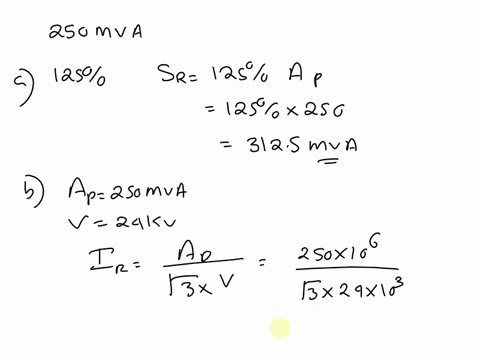 250 mVA
a) 125% SR = 125% Ap
= 125% × 250
= 312.5 mVA
b) Ap = 250 mVA
V = 24 KV
IR = Ap / √3 × V = 250×10^6 / √3 × 24×10^3